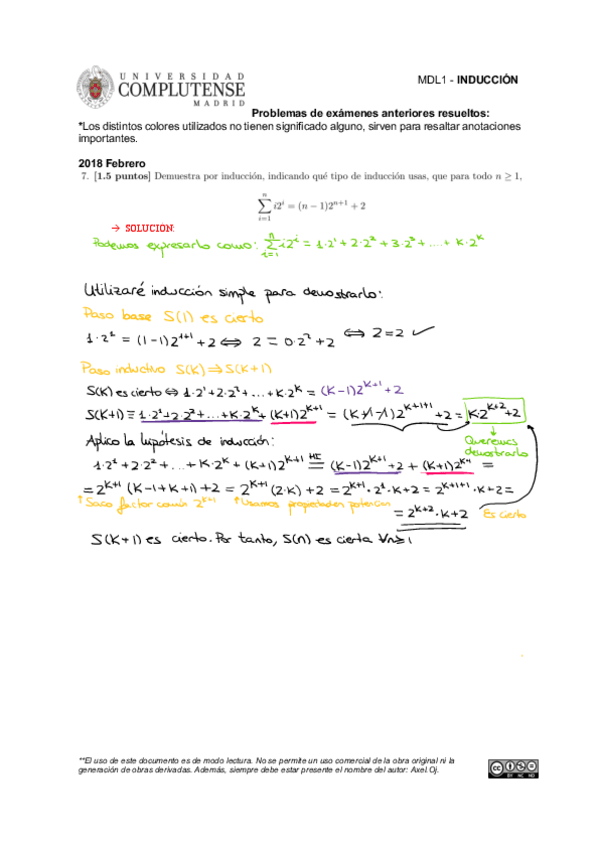 UNIVERSIDAD
COMPLUTENSE
MADRID
MDL1 - INDUCCIÓN
Problemas de exámenes anteriores resueltos:
*Los distintos colores utilizados no tienen significado alguno, sirven para resaltar anotaciones
importantes.
2018 Febrero
7. [1.5 puntos] Demuestra por inducción, indicando qué tipo de inducción usas, que para todo n ≥ 1,
∑_{i=1}^{n} i2^i = (n − 1)2^{n+1} + 2
→ SOLUCIÓN:
Podemos expresarlo como: ∑_{i=1}^{n} i2^i = 1·2^1 + 2·2^2 + 3·2^3 + .... + K·2^K
Utilizaré inducción simple para demostrarlo:
Paso base S(1) es cierto
1·2^1 = (1-1)2^{1+1} + 2 ⟺ 2 = 0·2^2 + 2 ⟺ 2=2 ✓
Paso inductivo S(K) ⟹ S(K+1)
S(K) es cierto ⟺ 1·2^1 + 2·2^2 + ... + K·2^K = (K-1)2^{K+1} + 2
S(K+1) ≡ 1·2^1 + 2·2^2 + ... + K·2^K + (K+1)2^{K+1} = (K+1-1)2^{K+1+1} + 2 = K·2^{K+2} + 2
Queremos
demostrarlo
Aplico la hipótesis de inducción:
1·2^1 + 2·2^2 + ... + K·2^K + (K+1)2^{K+1} =^{HI} (K-1)2^{K+1} + 2 + (K+1)2^{K+1} =
= 2^{K+1} (K-1+K+1) + 2 = 2^{K+1} (2·K) + 2 = 2^{K+1}·2^1·K + 2 = 2^{K+1+1}·K + 2 =
↑ Saco factor común 2^{K+1} ↑ Usamos propiedades potencias
= 2^{K+2}·K + 2 Es cierto
S(K+1) es cierto. Por tanto, S(n) es cierta ∀n≥1
**El uso de este documento es de modo lectura. No se permite un uso comercial de la obra original ni la
generación de obras derivadas. Además, siempre debe estar presente el nombre del autor: Axel.Oj.
cc BY NC ND